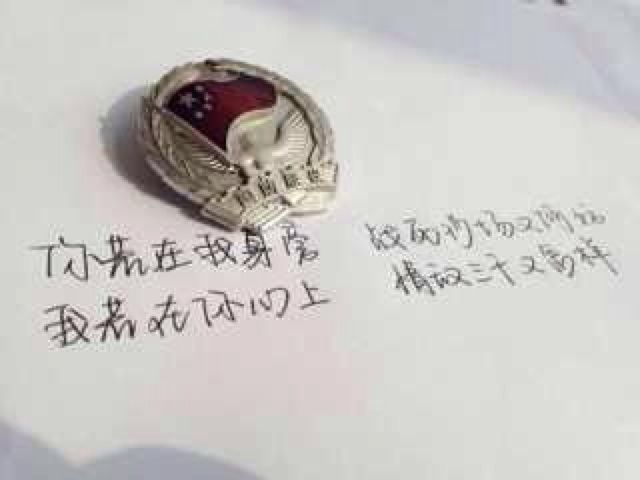 你若在我身旁
我若在你心上
战死沙场又何妨
情敌三千又怎样